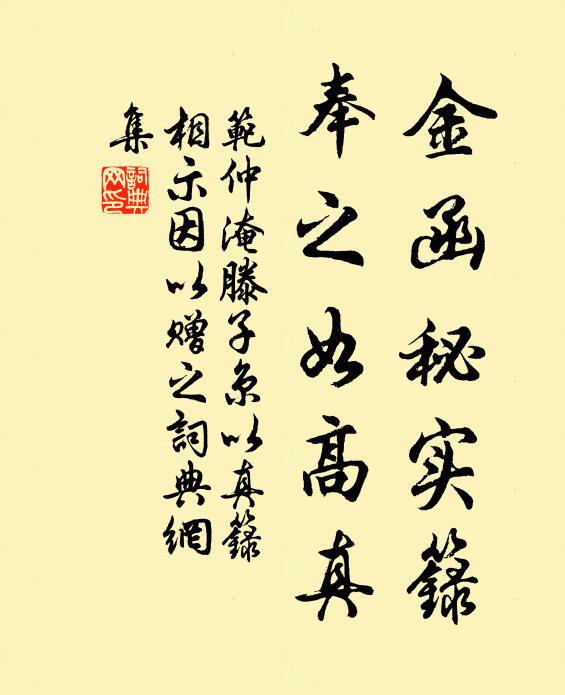 金函秘实籙
奉之如高真
範仲淹滕子京以真籙
相示因以赠之詞典網
集
詞典
网印